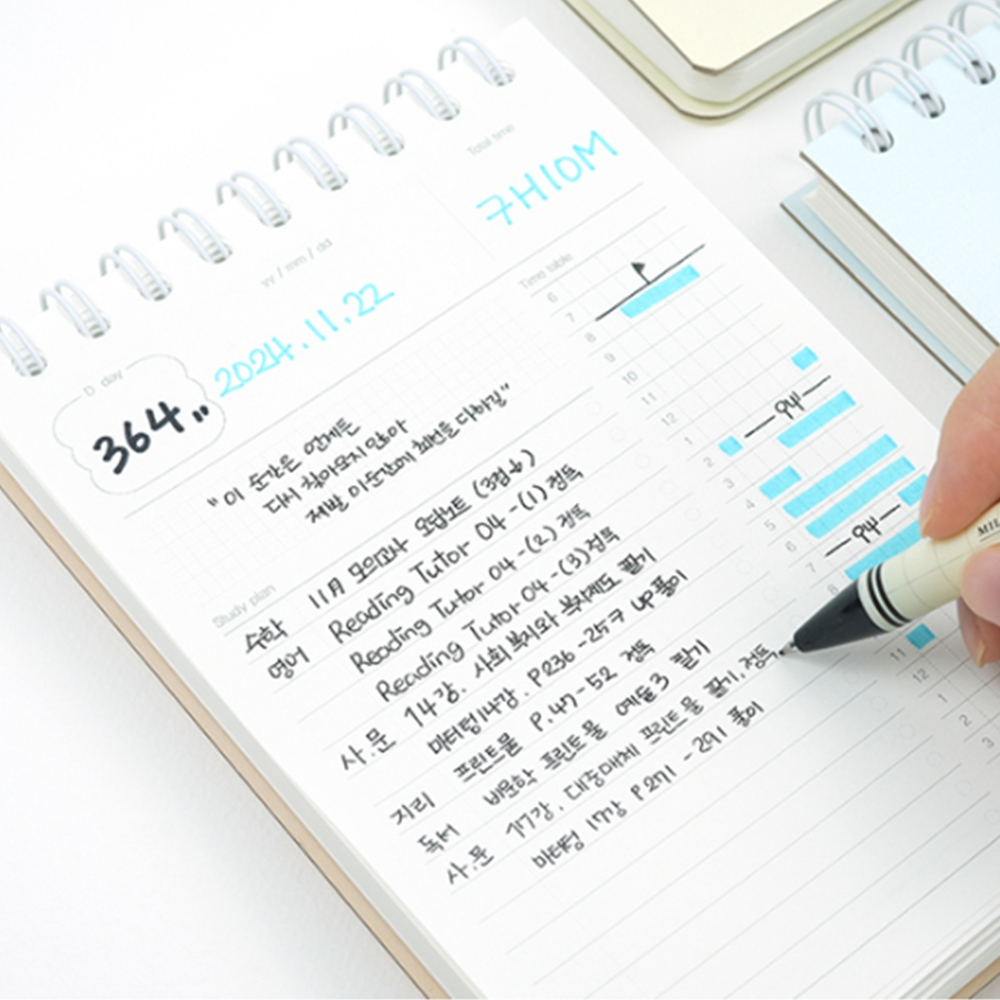 Total time
7H10M
yy / mm / dd
2024.11.22
D day
364"
"이 순간은 언제든
다시 찾아오지 않아
제발 이 순간에 최선을 다하길"
Time table
6
7
8
9
10
11
12
1
2
3
4
5
6
7
8
11
12
1
2
3
Study plan
수학 11月 모의고사 오답노트 (3점↓)
영어 Reading Tutor 04-(1) 정독
Reading Tutor 04-(2) 정독
Reading Tutor 04-(3) 정독
사.문 14강. 사회 복지와 복지제도 필기
마더텅 14강. P236-257 UP 풀이
지리 프린트물 P.47-52 정독
독서 비문학 프린트물 예들3 필기
사.문 17강. 대중매체 프린트물 필기,정독
마더텅 17강 P271-291 풀이
MIL